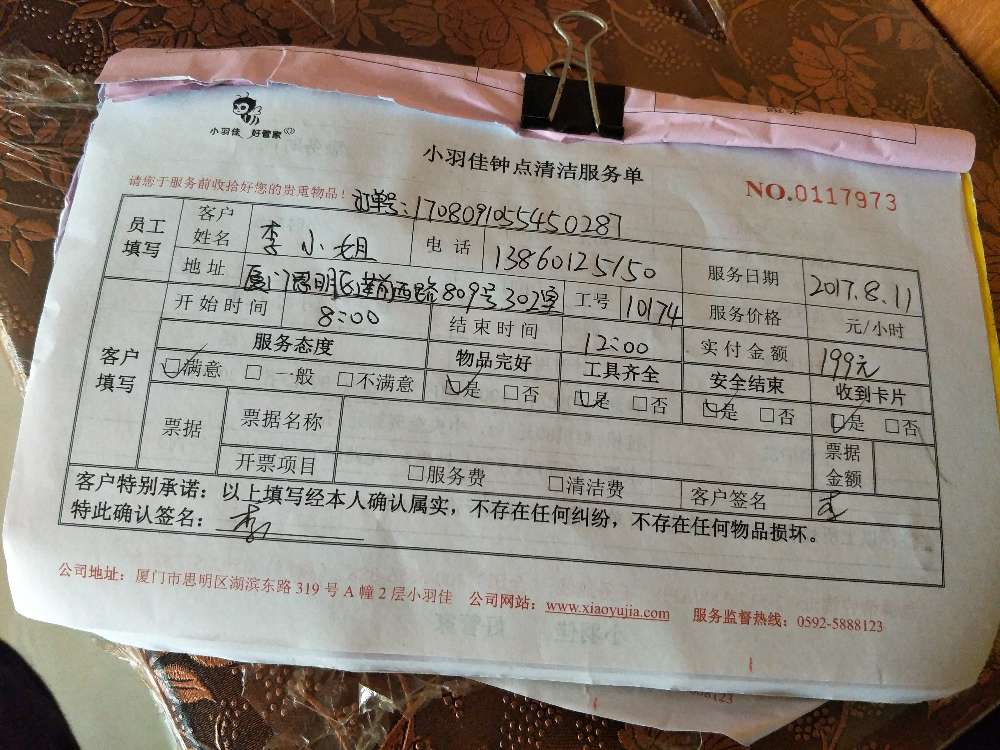 小羽佳 好管家
小羽佳钟点清洁服务单
请您于服务前收拾好您的贵重物品！
订单号:1708091055450287
NO.0117973
员工填写 客户姓名 李小姐 电话 13860125150 服务日期 2017.8.11
地址 厦门思明区莲前西路809号302室 工号 10174 服务价格 元/小时
客户填写 开始时间 8:00 结束时间 12:00 实付金额 199元
服务态度 物品完好 工具齐全 安全结束 收到卡片
☑满意 □一般 □不满意 ☑是 □否 ☑是 □否 ☑是 □否 ☑是 □否
票据 票据名称 票据金额
开票项目 □服务费 □清洁费 客户签名 李
客户特别承诺：以上填写经本人确认属实，不存在任何纠纷，不存在任何物品损坏。
特此确认签名：李
公司地址：厦门市思明区湖滨东路319号A幢2层小羽佳 公司网站：www.xiaoyujia.com 服务监督热线：0592-5888123